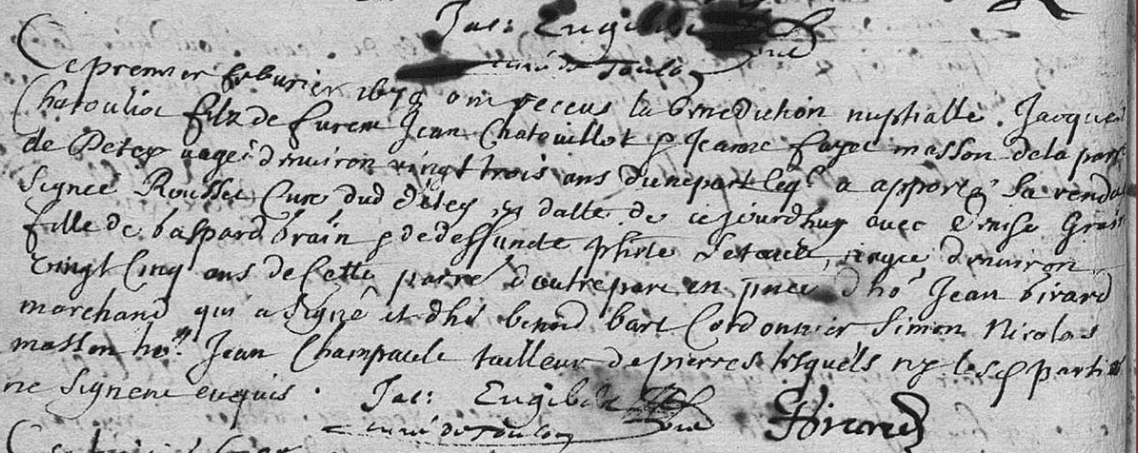 Jac: Engilb
curé de Toulon
Ce premier febvrier 1679 ont receus la benediction nuptialle Jacque
Chatouliot filz de furent Jean Chatouillot & Jeanne fayet masson de la parr
de Detey aagé d'environ vingt trois ans d'une part leql a apporté sa renda
Signee Rousset Curé dud Detey en datte de cejourdhuy avec Denise Grain
fille de Gaspard Grain & de deffuncte phile aagee d'environ
vingt Cinq ans de Cette parre d'autre part en pnce d'ho Jean Girard
marchand qui a signé et d'ho benoid bart Cordonnier Simon Nicolas
masson ho. Jean Champaule tailleur de pierres lesquels ny lesd partie
ne signent enquis. Jac: Engilb
curé de Toulon JGirard